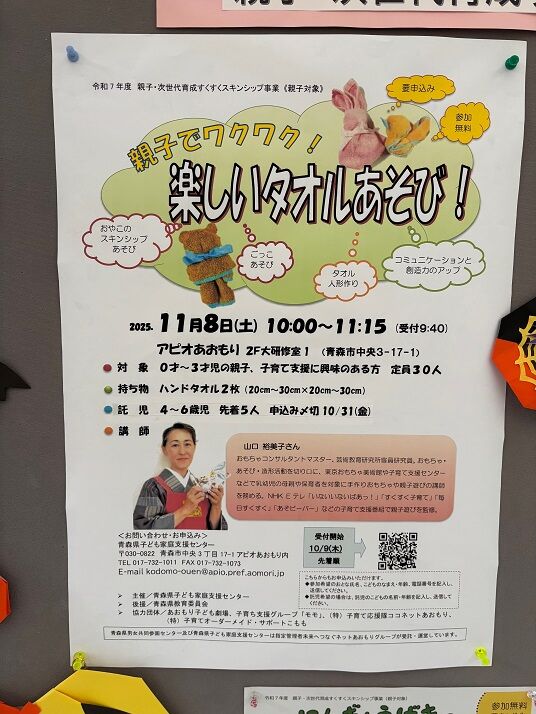 令和7年度 親子・次世代育成すくすくスキンシップ事業《親子対象》
要申込み
参加
無料
親子でワクワク！
楽しいタオルあそび！
おやこの
スキンシップ
あそび
ごっこ
あそび
タオル
人形作り
コミュニケーションと
創造力のアップ
2025. 11月8日(土) 10:00～11:15 (受付9:40)
アピオあおもり 2F大研修室1 (青森市中央3-17-1)
● 対 象 0才～3才児の親子、子育て支援に興味のある方 定員30人
● 持ち物 ハンドタオル2枚 (20cm～30cm×20cm～30cm)
● 託 児 4～6歳児 先着5人 申込み〆切 10/31(金)
● 講 師
山口 裕美子さん
おもちゃコンサルタントマスター、芸術教育研究所客員研究員。おもちゃ・
あそび・造形活動を切り口に、東京おもちゃ美術館や子育て支援センター
などで乳幼児の母親や保育者を対象に手作りおもちゃや親子遊びの講師
を務める。NHK Eテレ「いないいないばあっ！」「すくすく子育て」「毎
日すくすく」「あそビーバー」などの子育て支援番組で親子遊びを監修。
＜お問い合わせ・お申込み＞
青森県子ども家庭支援センター
〒030-0822 青森市中央3丁目17-1アピオあおもり内
TEL 017-732-1011 FAX 017-732-1073
E-mail kodomo-ouen@apio.pref.aomori.jp
受付開始
10/9(木)
先着順
こちらからもお申込みいただけます。
●参加希望のおとな氏名、こどものなまえ・年齢、電話番号を記入し、
送信してください。
●託児希望の場合は、託児のこどもの名前・年齢を記入し、送信して
ください。
➢ 主催／青森県子ども家庭支援センター
➢ 後援／青森県教育委員会
➢ 協力団体／あおもり子ども劇場、子育ち支援グループ「モモ」、(特)子育て応援隊ココネットあおもり、
(特)子育てオーダーメイド・サポートこもも
青森県男女共同参画センター及び青森県子ども家庭支援センターは指定管理者未来へつなぐネットあおもりグループが受託・運営しています。
令和7年度 親子・次世代育成すくすくスキンシップ事業《親子対象》
参加
無料